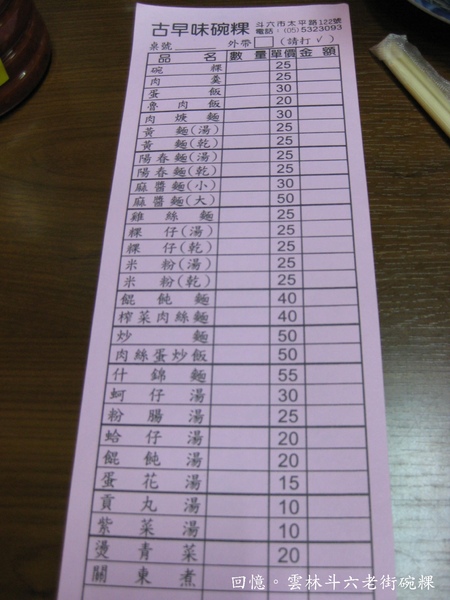 古早味碗粿 斗六市太平路122號
電話：(05)5323093
桌號 外帶 (請打✓)
品名 數量 單價 金額
碗粿 25
肉羹 25
蛋飯 30
魯肉飯 20
肉焿麵 30
黃麵(湯) 25
黃麵(乾) 25
陽春麵(湯) 25
陽春麵(乾) 25
麻醬麵(小) 30
麻醬麵(大) 50
雞絲麵 25
粿仔(湯) 25
粿仔(乾) 25
米粉(湯) 25
米粉(乾) 25
餛飩麵 40
榨菜肉絲麵 40
炒麵 50
肉絲蛋炒飯 50
什錦麵 55
蚵仔湯 30
粉腸湯 25
蛤仔湯 20
餛飩湯 20
蛋花湯 15
貢丸湯 10
紫菜湯 10
燙青菜 20
關東煮
回憶。雲林斗六老街碗粿